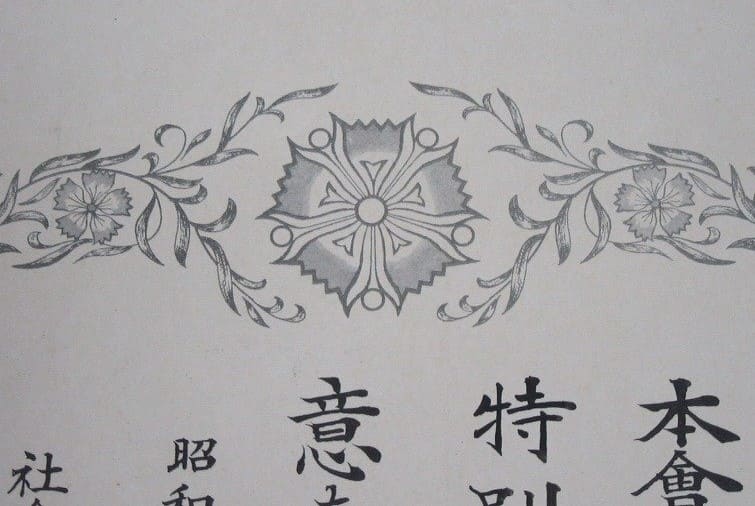 本會
特別
意
昭和
社